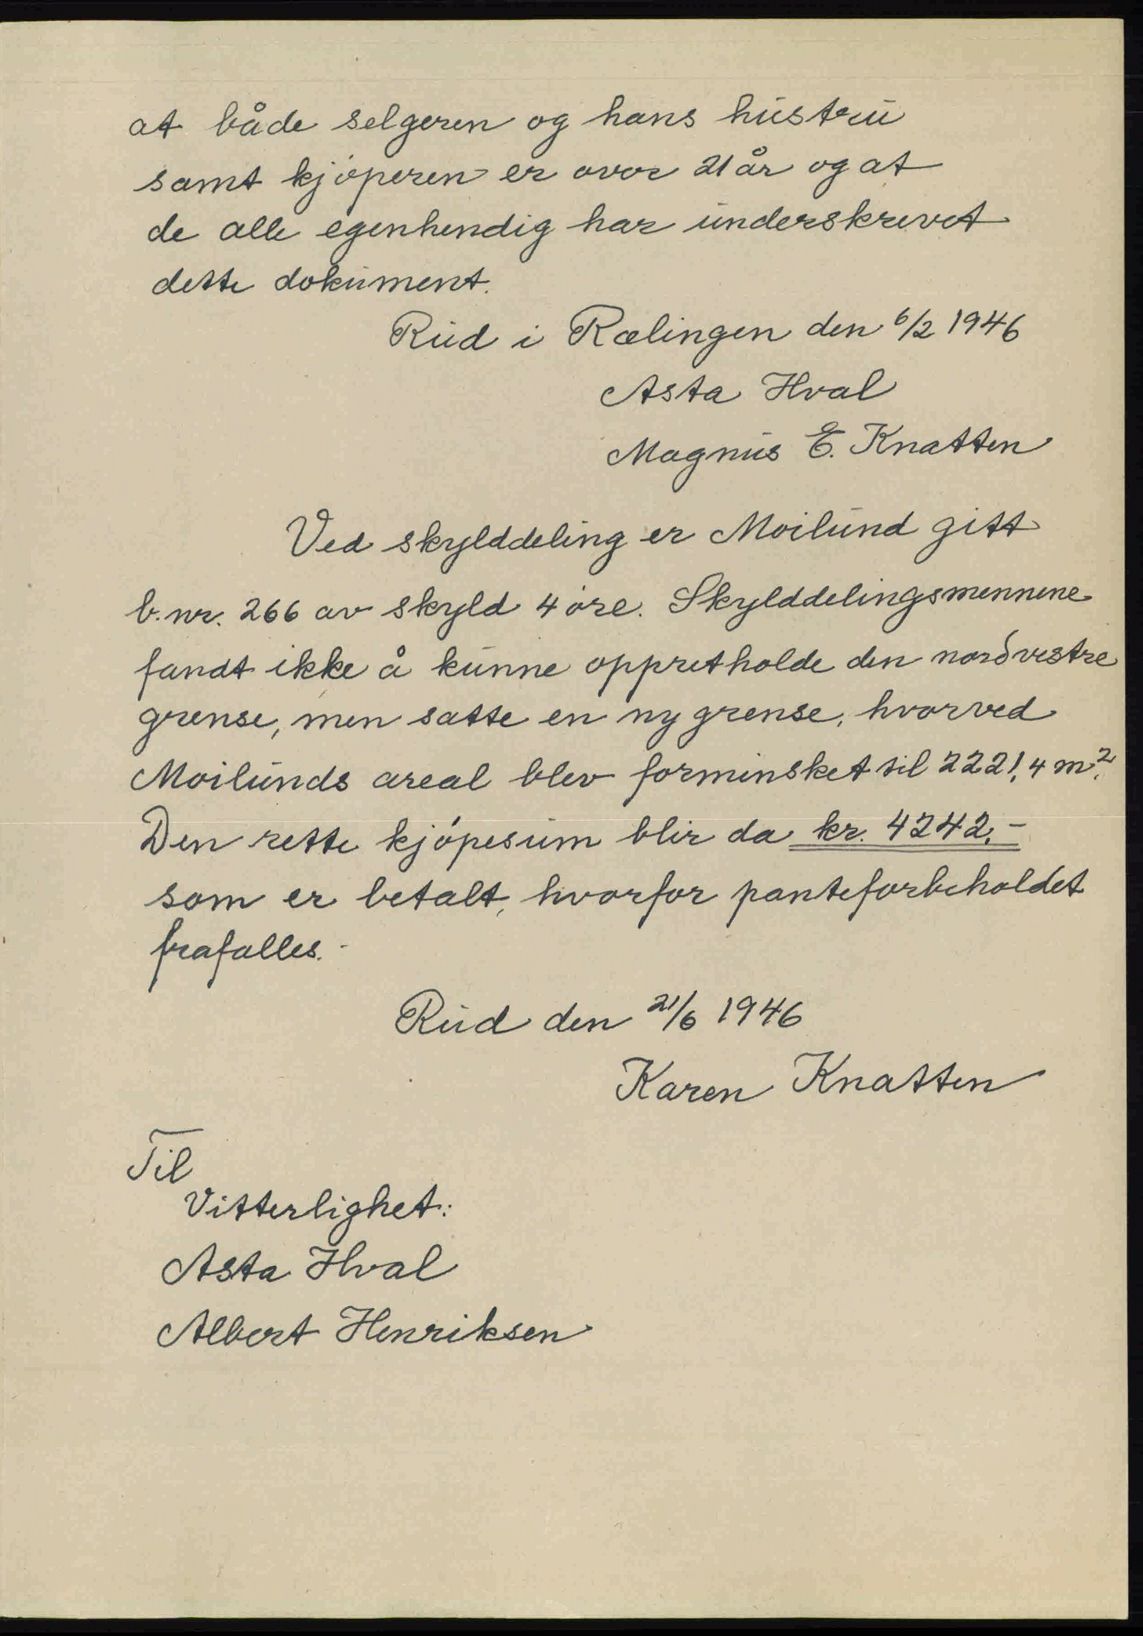 at både selgeren og hans hustru
samt kjøperen er over 21 år og at
de alle egenhendig har underskrevet
dette dokument.
Rud i Rælingen den 6/2 1946
Asta Hval
Magnus E. Knatten
Ved skylddeling er Moilund gitt
b.nr. 266 av skyld 4 øre. Skylddelingsmennene
fandt ikke å kunne oppretholde den nordvestre
grense, men satte en ny grense, hvorved
Moilunds areal blev forminsket til 2221,4 m².
Den rette kjøpesum blir da kr. 4242,-
som er betalt, hvorfor panteforbeholdet
frafalles.-
Rud den 21/6 1946
Karen Knatten
Til
Vitterlighet:
Asta Hval
Albert Henriksen